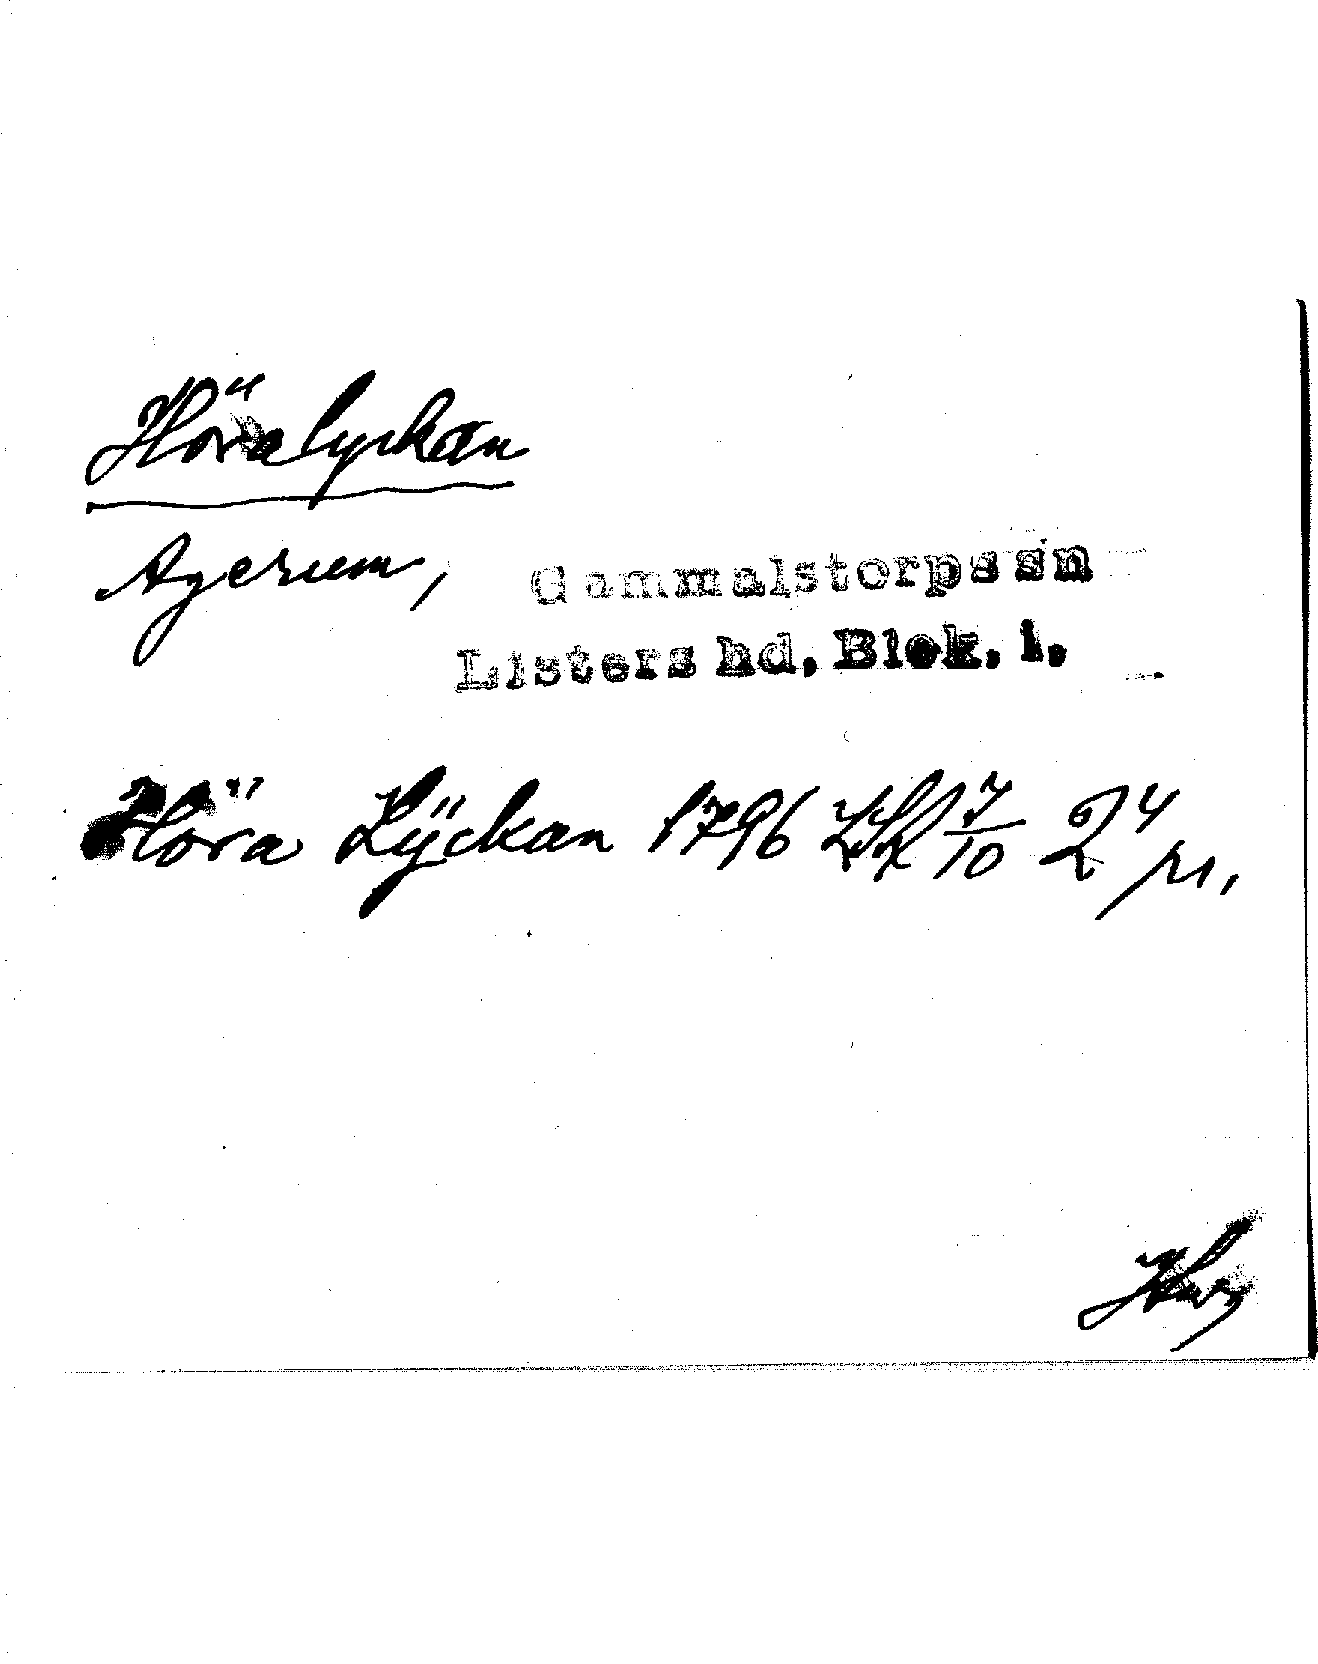 Höralyckan
Agerum, Gammalstorps sn
Listers hd, Blek. l,
Höra Lÿckan 1796 LSK 7/10 24